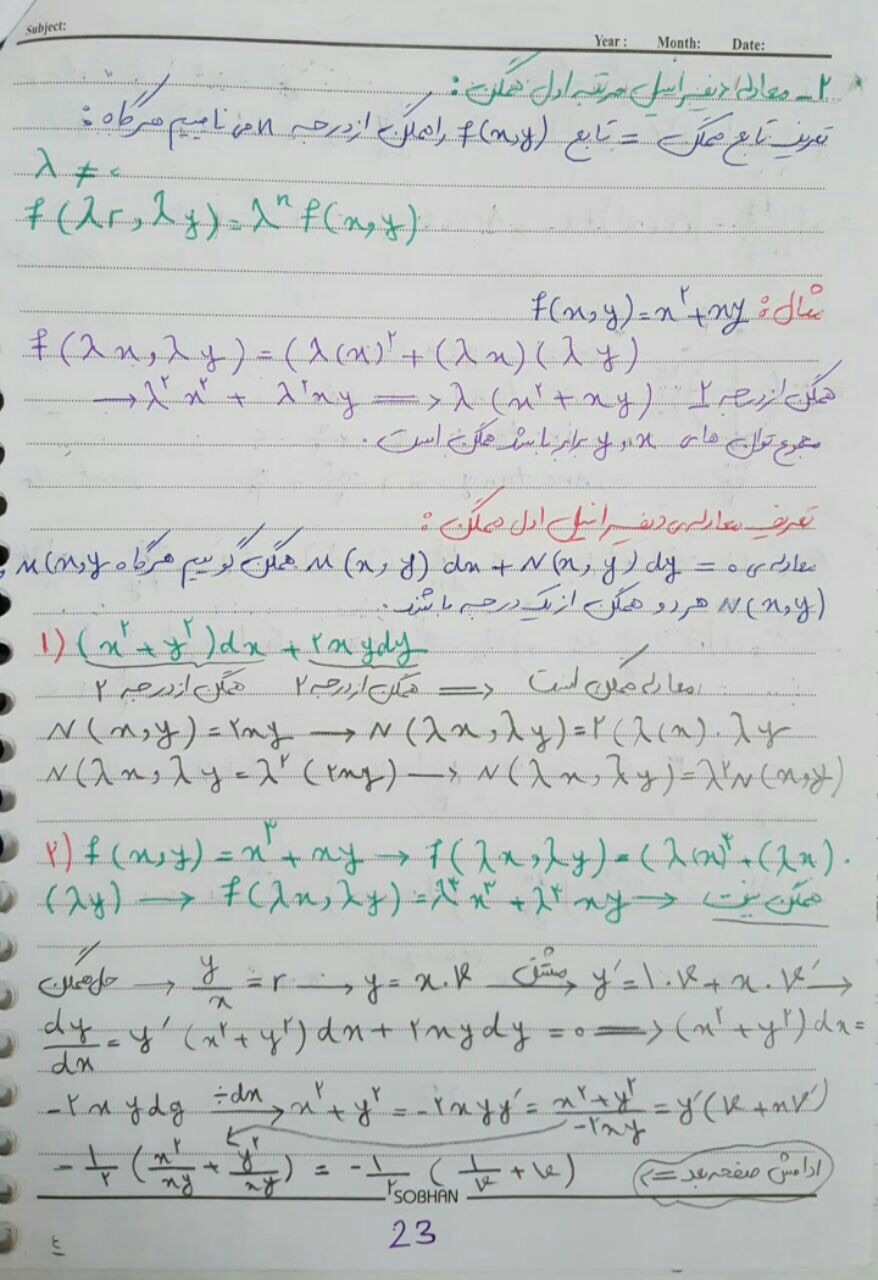 Subject:
Year : Month: Date:
۲- معادله دیفرانسیل مرتبه اول همگن :
تعریف تابع همگن = تابع f(x,y) را همگن از درجه n می نامیم هرگاه :
λ ≠ ۰
f(λr,λy)=λⁿ f(x,y)
مثال : f(x,y)=x²+xy
f(λx,λy)=(λ(x)²+(λx)(λy)
→λ²x² + λ²xy ⟹ λ(x²+xy) همگن از درجه ۲
مجموع توان های x و y برابر باشد همگن است .
تعریف معادله ی دیفرانسیل اول همگن :
معادله ی M(x,y)dx+N(x,y)dy=۰ همگن گوییم هرگاه M(x,y و
N(x,y) هر دو همگن از یک درجه باشند .
۱) (x²+y²)dx + ۲xydy
همگن از درجه ۲ همگن از درجه ۲ ⟹ معادله همگن است
N(x,y)=۲xy → N(λx,λy)=۲(λ(x).λy
N(λx,λy=λ²(۲xy) → N(λx,λy)=λ²N(x,y)
۲) f(x,y)=x³+xy → f(λx,λy)=(λ(x)³+(λx).
(λy) → f(λx,λy)=λ³x³+λ²xy → همگن نیست
حل همگن → y/x = r → y=x.v مشتق→ y′=۱.v+x.v′ →
dy/dx=y′ (x²+y²)dx+۲xydy=۰ ⟹ (x²+y²)dx=
-۲xydy ÷dx→ x²+y²=-۲xyy′= x²+y²/-۲xy =y′(v+xv′)
-۱/۲ (x²/xy + y²/xy) = -۱/۲ (۱/v + v) ادامش صفحه بعد ⟹
SOBHAN
23
٤